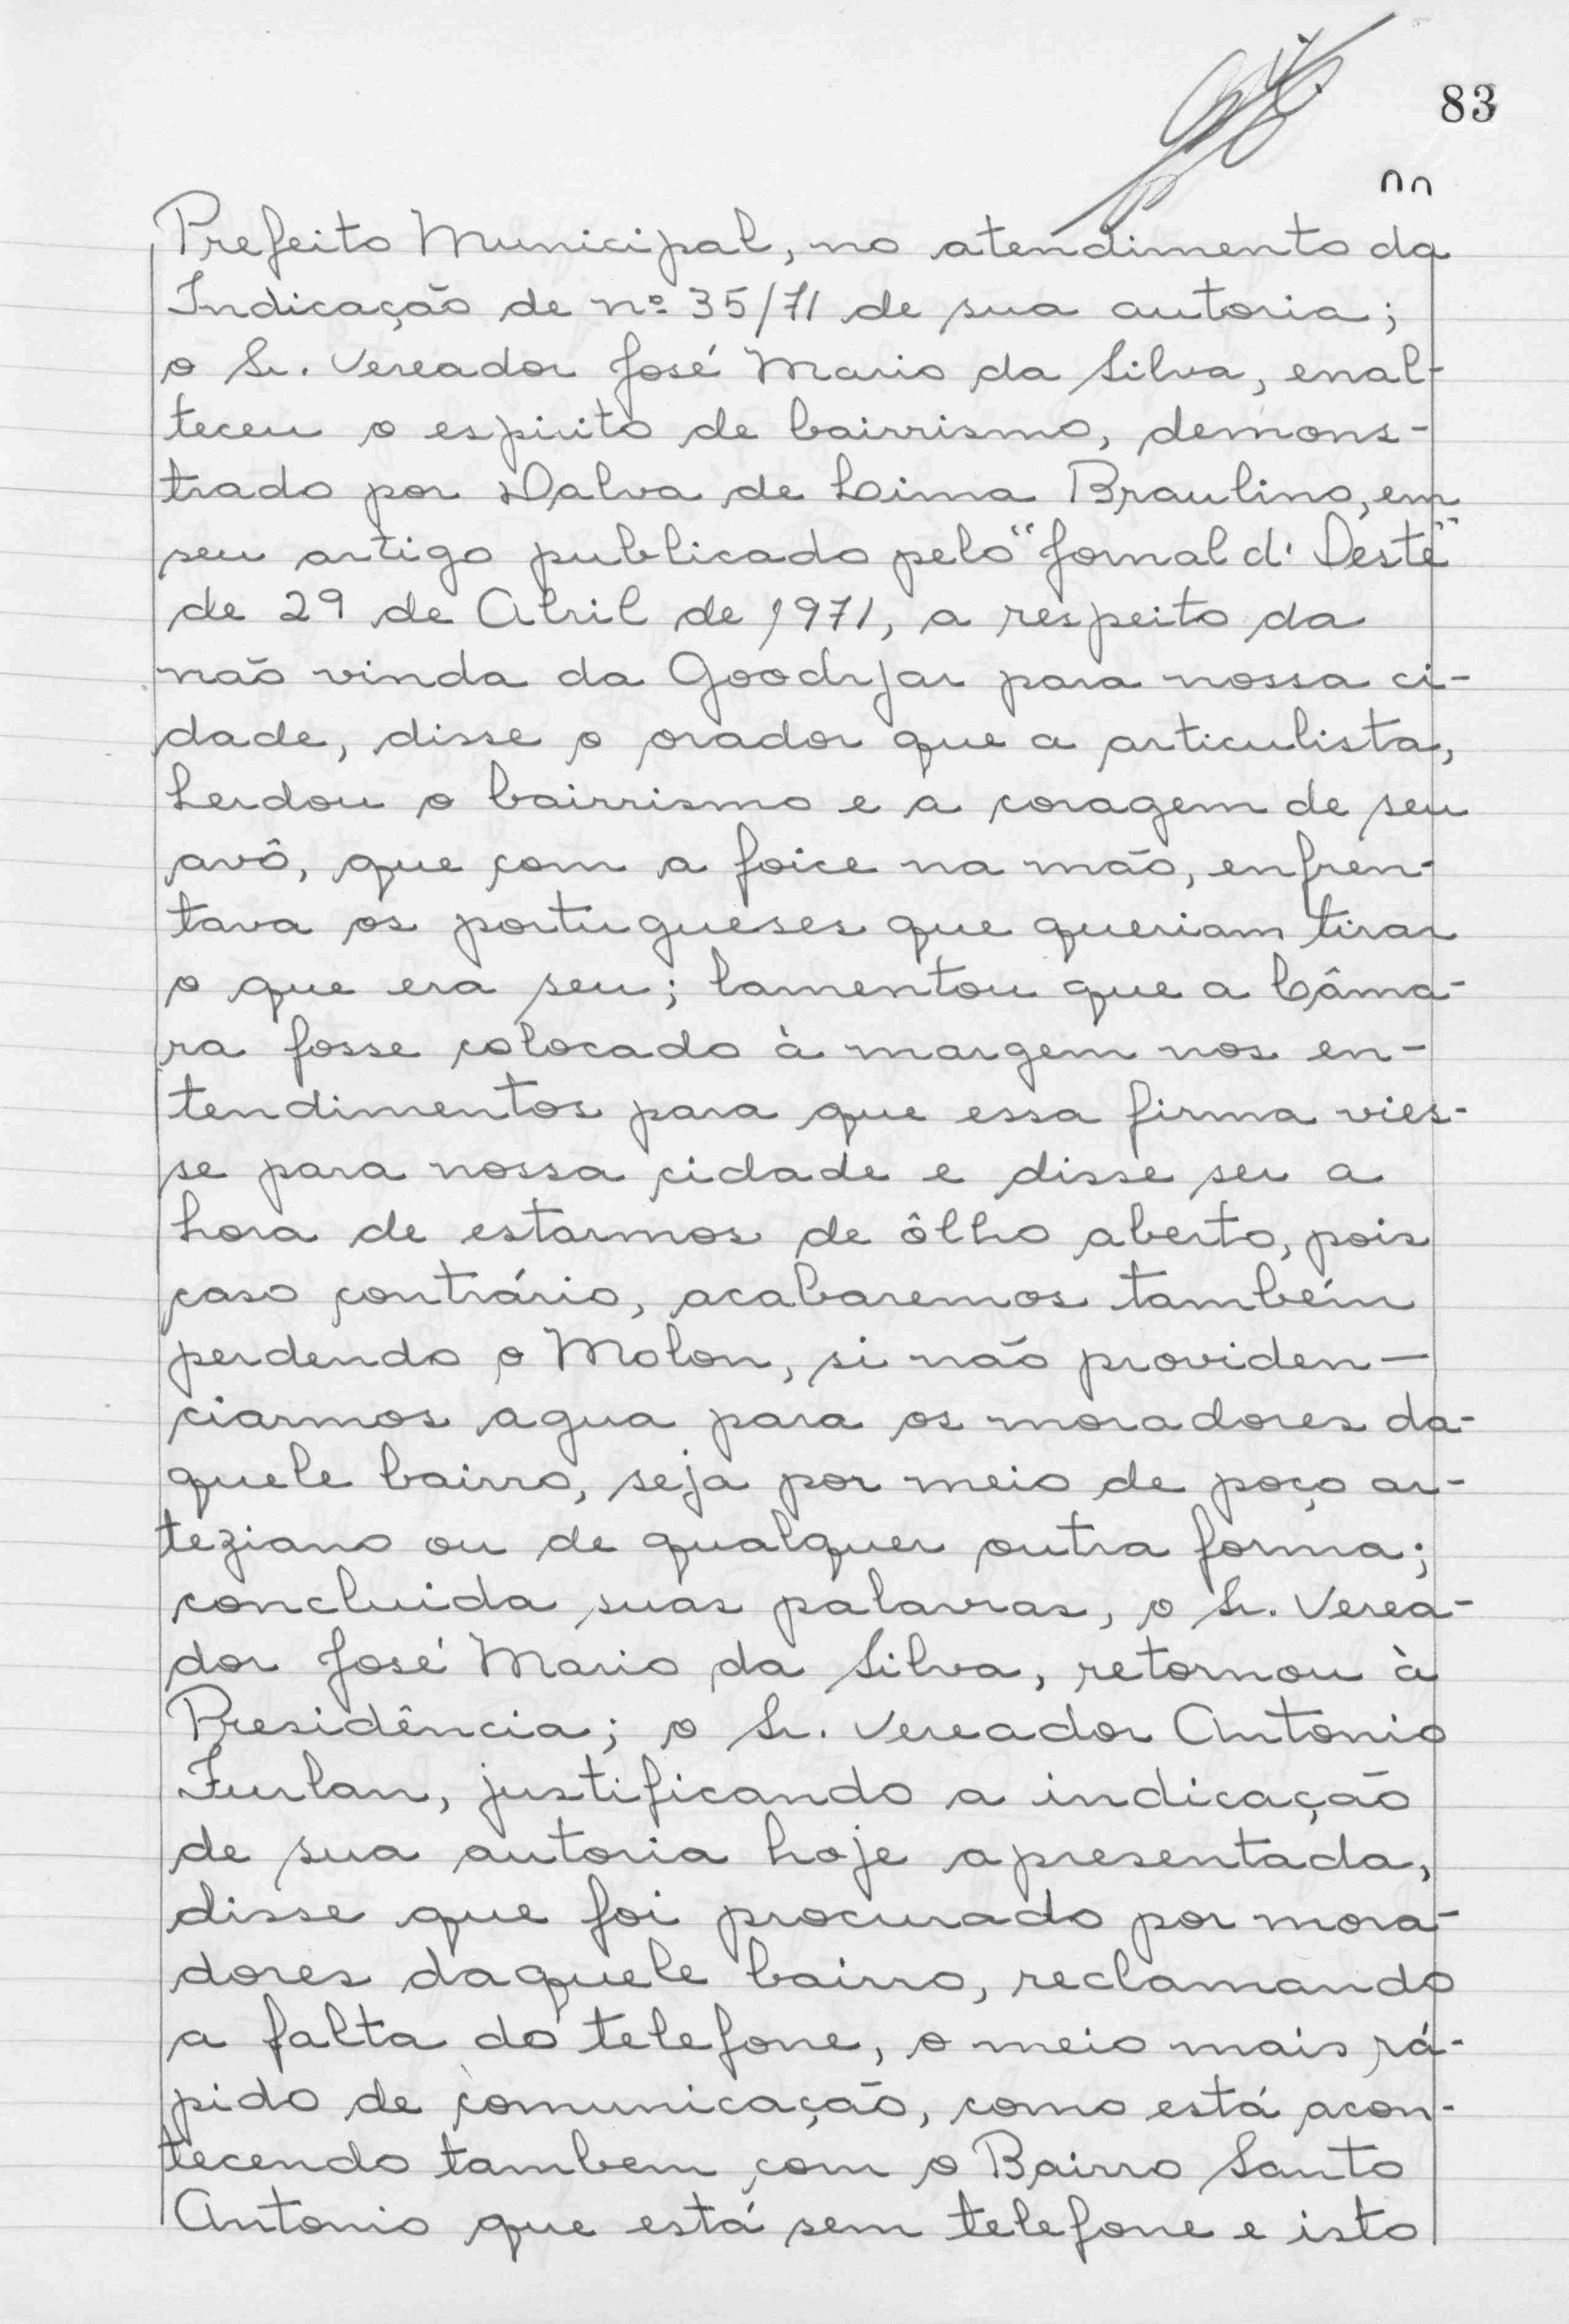 83
Prefeito Municipal, no atendimento da
Indicação de nº 35/71 de sua autoria;
o Sr. Vereador José Mario da Silva, enal-
teceu o espirito de bairrismo, demons-
trado por Dalva de Lima Braulino, em
seu artigo publicado pelo "Jornal d'Oeste"
de 29 de Abril de 1971, a respeito da
não vinda da Goodyar para nossa ci-
dade, disse o orador que a articulista,
herdou o bairrismo e a coragem de seu
avô, que com a foice na mão, enfren-
tava os portugueses que queriam tirar
o que era seu; lamentou que a Câma-
ra fosse colocado à margem nos en-
tendimentos para que essa firma vies-
se para nossa cidade e disse ser a
hora de estarmos de ôlho aberto, pois
caso contrário, acabaremos também
perdendo o Molon, si não providen-
ciarmos agua para os moradores da-
quele bairro, seja por meio de poço ar-
teziano ou de qualquer outra forma;
concluida suas palavras, o Sr. Verea-
dor José Mario da Silva, retornou à
Presidência; o Sr. Vereador Antonio
Furlan, justificando a indicação
de sua autoria hoje apresentada,
disse que foi procurado por mora-
dores daquele bairro, reclamando
a falta do telefone, o meio mais rá-
pido de comunicação, como está acon-
tecendo tambem com o Bairro Santo
Antonio que está sem telefone e isto